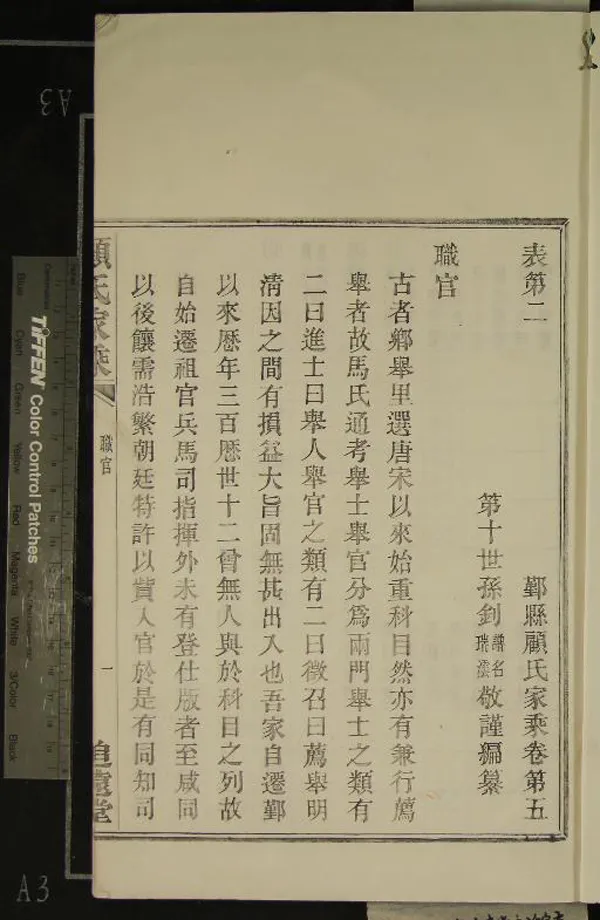 表第二
鄞縣顧氏家乘卷第五
第十世孫釗譜名瑞瀛敬謹編纂
職官
古者鄉舉里選唐宋以來始重科目然亦有兼行薦
舉者故馬氏通考舉士舉官分為兩門舉士之類有
二曰進士曰舉人舉官之類有二曰徵召曰薦舉明
清因之間有損益大旨固無甚出入也吾家自遷鄞
以來歷年三百歷世十二曾無人與於科目之列故
自始遷祖官兵馬司指揮外未有登仕版者至咸同
以後饟需浩繁朝廷特許以貲入官於是有同知司
顧氏家乘
職官
一
追遠堂
A3
A3
TIFFEN Color Control Patches
Blue
Cyan
Green
Yellow
Red
Magenta
White
3/Color
Black